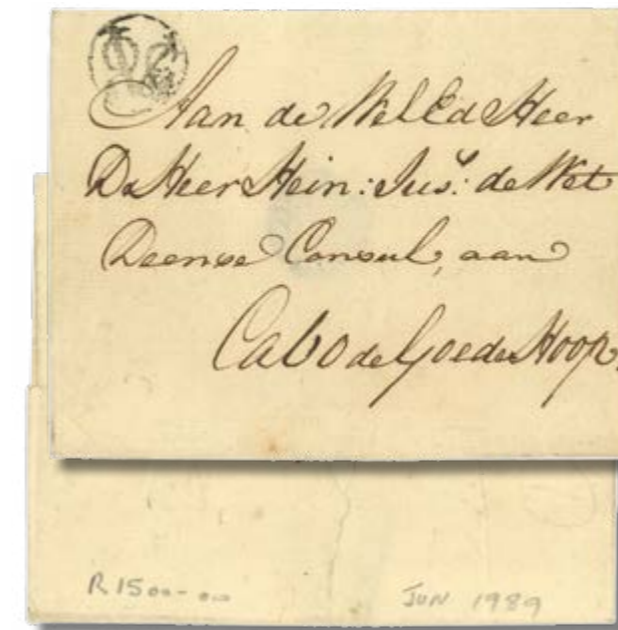 Aan de WelEd Heer
De Heer Hein: Jus: de Wet
Deense Consul, aan
Cabo de Goede Hoop.
R1500-00
JUN 1989